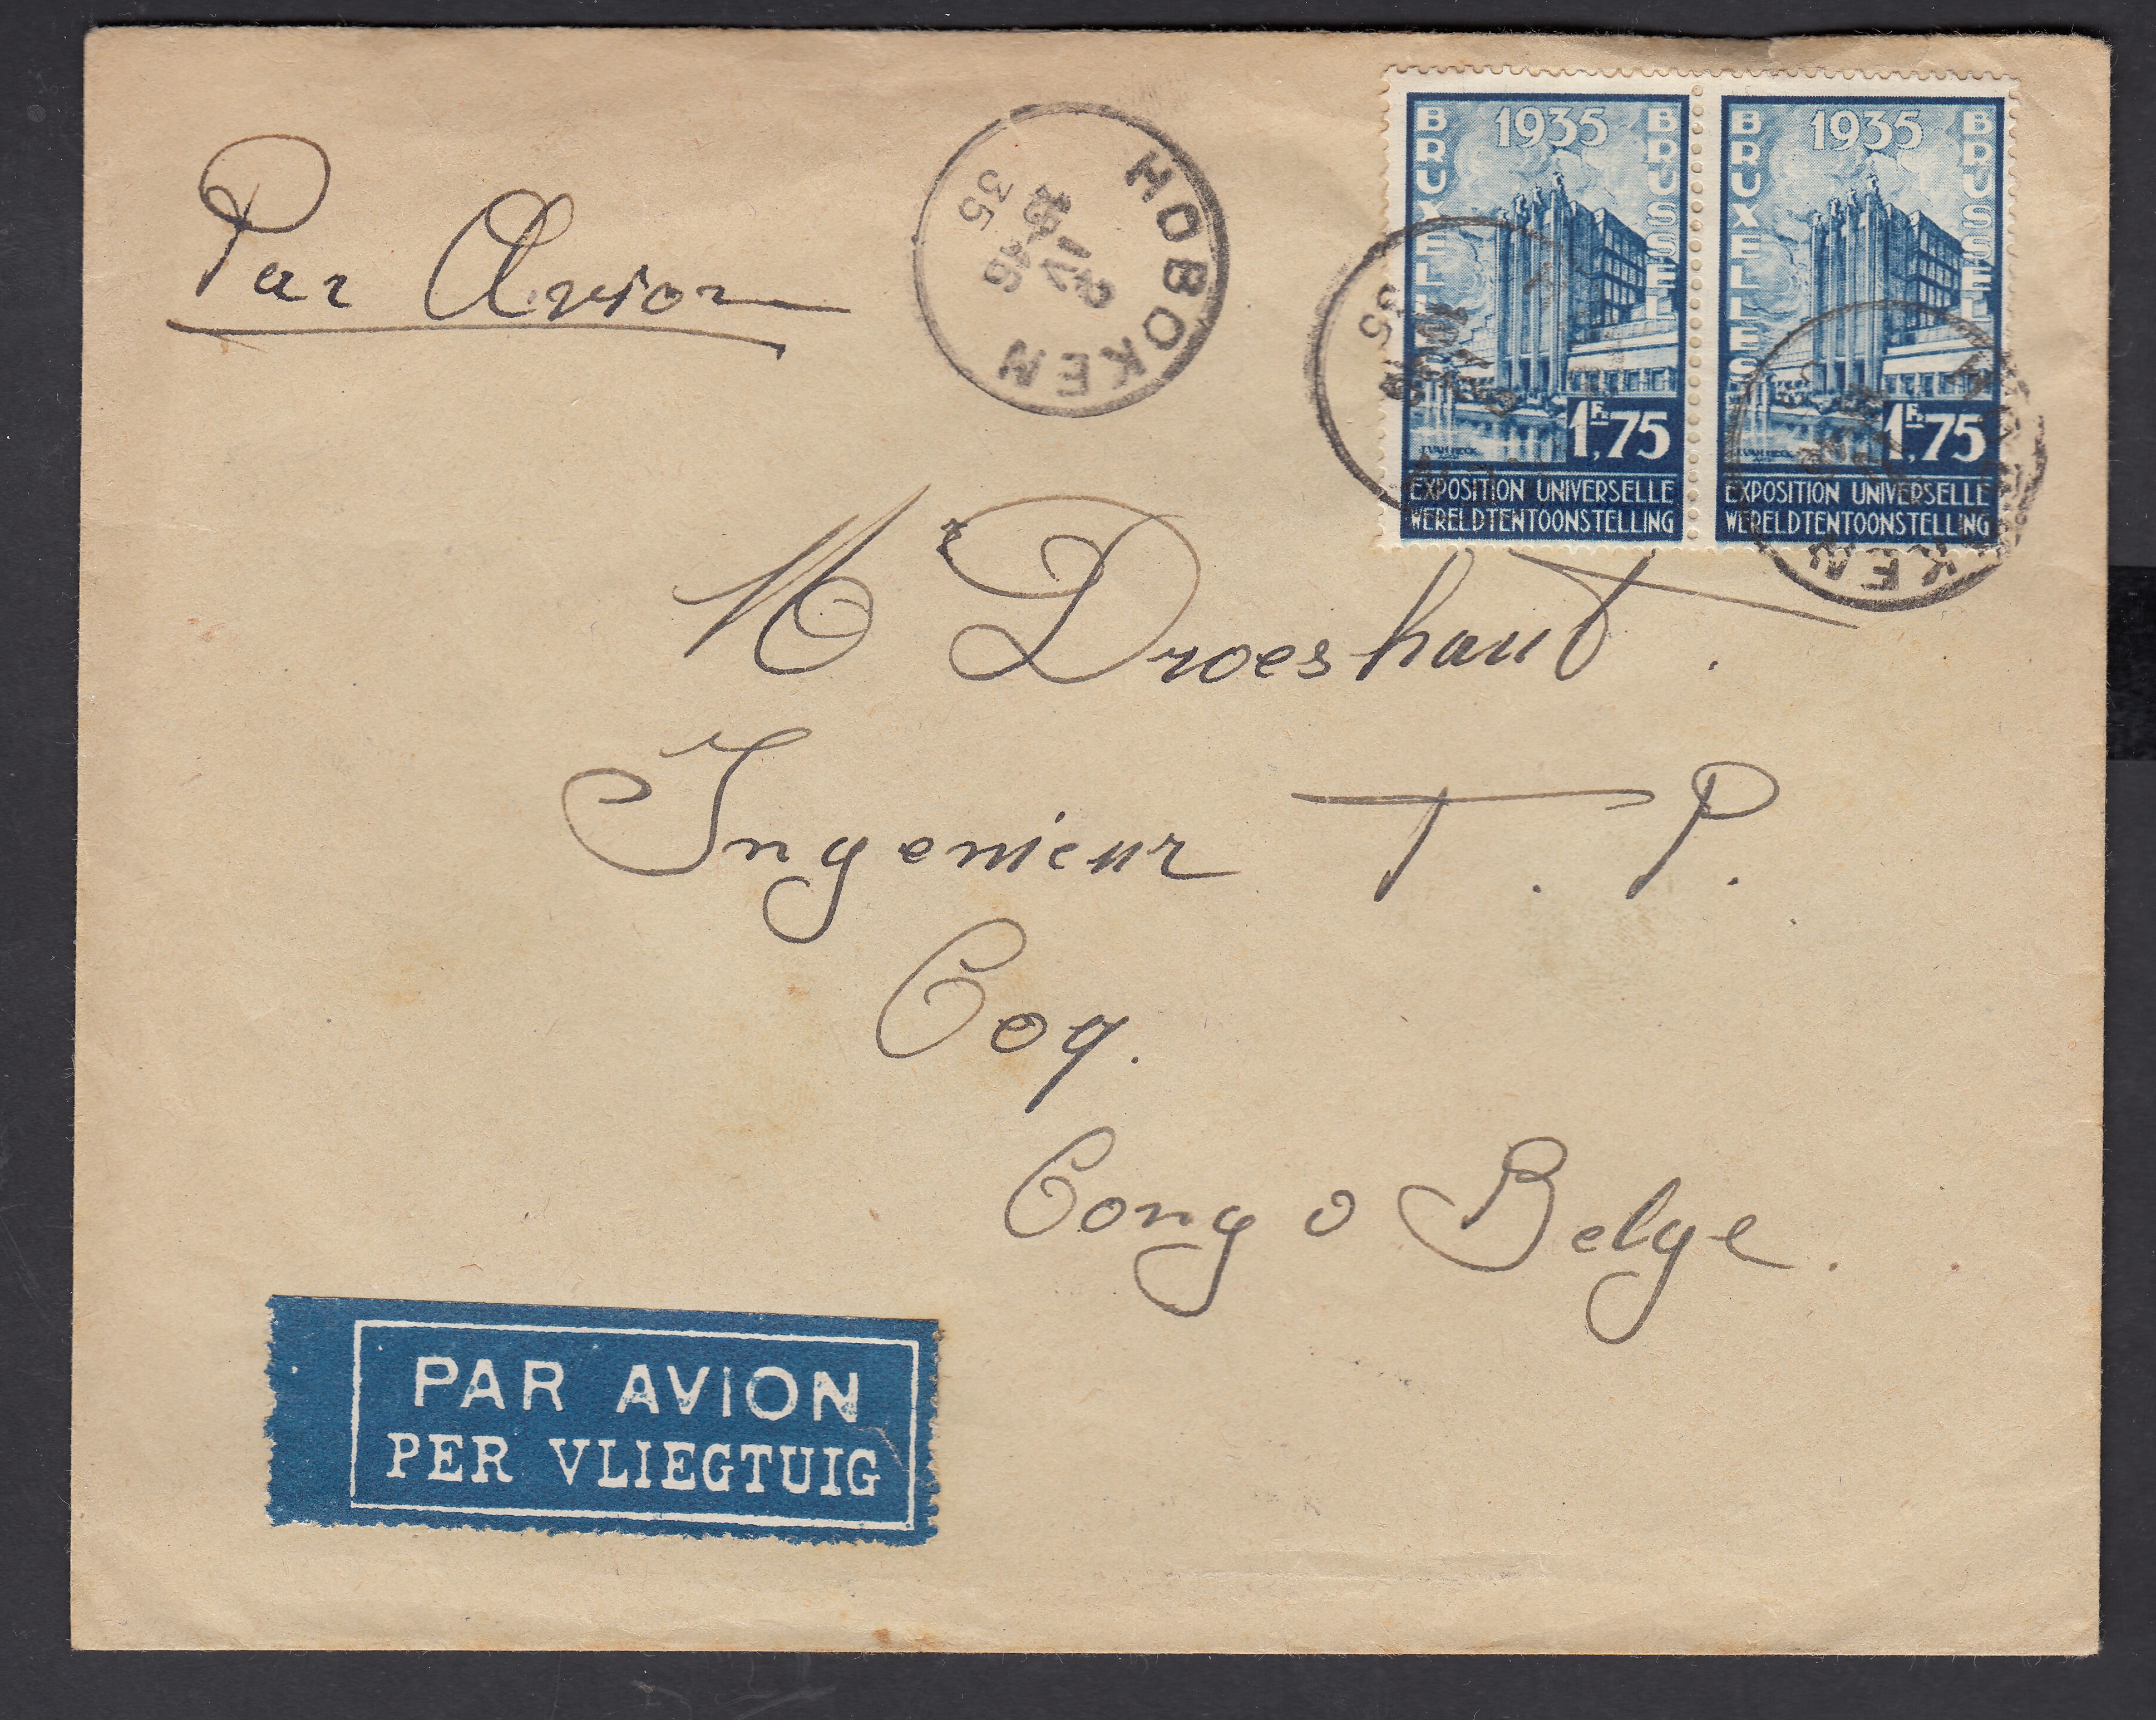 Par Avion
HOBOKEN
35
BRUXELLES
1935
BRUSSEL
1Fr,75
EXPOSITION UNIVERSELLE
WERELDTENTOONSTELLING
BRUXELLES
1935
BRUSSEL
1Fr,75
EXPOSITION UNIVERSELLE
WERELDTENTOONSTELLING
Mr Droeshaut.
Ingenieur T. P.
Coq.
Congo Belge.
PAR AVION
PER VLIEGTUIG